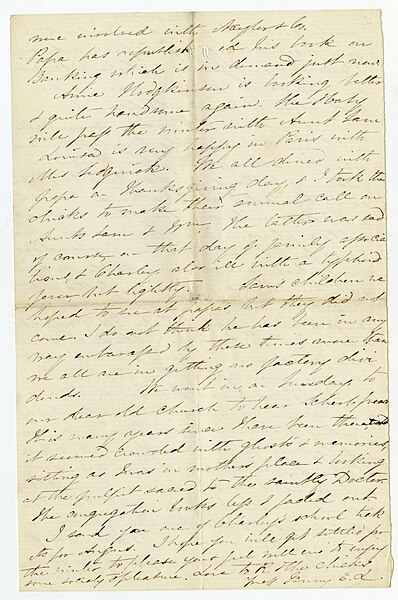 were involved with Naylor & Co.
Papa has republish ed his book on
Banking which is in demand just now.
Anne Hodgkinson is looking better
& quite handsome again. She & baby
will pass the winter with Aunt Sam
Louisa is very happy in Paris with
Mrs Sedgwick. We all dined with
papa on Thanksgiving day, & I took the
chicks to make their annual call on
Aunts Sam & Lym The latter was sad
of course on that day of family associa
tions, & Charley also ill with a typhoid
fever but lightly. Sam's children we
hoped to see at papa's but they did not
come. I do not think he has been in any
way embarrassed by these times more than
we all are in getting no factory divi
dends. We went in on Sunday to
our dear old church to hear
It is many years since I have been there, &
it seemed crowded with ghosts & memories,
sitting as I was in mothers place & looking
at the pulpit sacred to the saintly Doctor.
The congregation looks less & faded out
I send you one of Charley's school tick
ets for Angus. I hope you will get settled for
the winter to please you & feel well enough to enjoy
some society & pleasure. Love to R. & the chicks
yrs E.L.